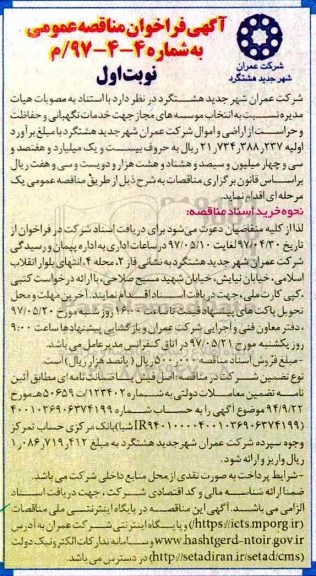 آگهی فراخوان مناقصه عمومی
به شماره ۴-۴-۹۷/م
نوبت اول
شرکت عمران
شهر جدید هشتگرد
شرکت عمران شهر جدید هشتگرد در نظر دارد با استناد به مصوبات هیات
مدیره نسبت به انتخاب موسسه های مجاز جهت خدمات نگهبانی و حفاظت
و حراست از اراضی و اموال شرکت عمران شهر جدید هشتگرد با مبلغ برآورد
اولیه ۲۱,۷۳۴,۳۸۸,۲۳۷ ریال به حروف بیست و یک میلیارد و هفتصد و
سی و چهار میلیون و سیصد و هشتاد و هشت هزار و دویست و سی و هفت ریال
براساس قانون برگزاری مناقصات به شرح ذیل از طریق مناقصه عمومی یک
مرحله ای اقدام نماید.
نحوه خرید اسناد مناقصه:
لذا از کلیه متقاضیان دعوت می شود برای دریافت اسناد شرکت در فراخوان از
تاریخ ۹۷/۰۴/۳۰ لغایت ۹۷/۰۵/۱۰ در ساعات اداری به اداره پیمان و رسیدگی
شرکت عمران شهر جدید هشتگرد به نشانی فاز ۲، محله ۴، انتهای بلوار انقلاب
اسلامی، خیابان نیایش، خیابان شهید مسیح صلاحی، با ارائه درخواست کتبی
،کپی کارت ملی، جهت دریافت اسناد اقدام نمایند. آخرین مهلت و محل
تحویل پاکت های پیشنهاد قیمت تا ساعت ۱۶:۰۰ روز شنبه مورخ ۹۷/۰۵/۲۰
، دفتر معاون فنی و اجرایی شرکت عمران و بازگشایی پیشنهادها ساعت ۹:۰۰
روز یکشنبه مورخ ۹۷/۰۵/۲۱ در اتاق کنفرانس مدیرعامل می باشد.
-مبلغ فروش اسناد مناقصه ۵۰۰,۰۰۰ ریال (پانصد هزار ریال) است.
نوع تضمین شرکت در مناقصه: اصل فیش یا ضمانت نامه ای مطابق آئین
نامه تضمین معاملات دولتی به شماره ۱۲۳۴۰۲/ت ۵۰۶۵۹ هـ مورخ
۹۴/۹/۲۲ موضوع آگهی را به حساب شماره ۴۰۰۱۰۳۶۹۰۶۳۷۴۱۹۹
(شبا) بانک مرکزی حساب تمرکز
وجوه سپرده شرکت عمران شهر جدید هشتگرد به مبلغ ۱,۰۸۶,۷۱۹,۴۱۲
ریال واریز و ارائه شود.
-شرایط پرداخت به صورت نقدی از محل منابع داخلی شرکت می باشد.
ضمنا ارائه شناسه ملی و کد اقتصادی شرکت ، جهت دریافت اسناد
الزامی می باشد. آگهی این مناقصه در پایگاه اینترنتی ملی مناقصات
(https://icts.mporg.ir) و پایگاه اینترنتی شرکت عمران به آدرس
www.hashtgerd-ntoir.gov.ir و سامانه تدارکات الکترونیک دولت
(http://setadiran.ir/setad/cms) در دسترس می باشد.